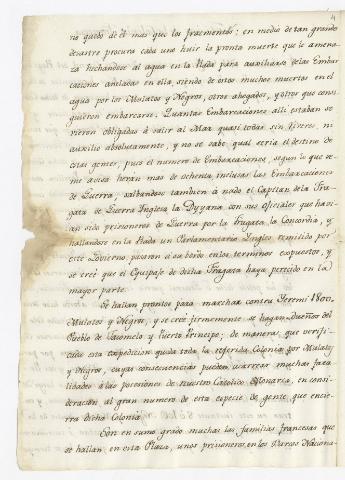 4
no quedó de él mas que los fragmentos: en medio de tan grande
desastre procura cada uno huir la pronta muerte que le amena
za hechandose al agua en la Rada para auxiliarse de las Embar
caciones ancladas en ella, siendo de estos muchos muertos en el
agua por los Mulatos y Negros, otros ahogados, y otros que consi
guieron embarcarse. Quantas Embarcaciones allí estaban se
vieron obligadas á salir al Mar quasi todas sin víveres, ni
auxilio absolutamente, y no se sabe qual sería el destino de
estas gentes, pues el numero de Embarcaciones, segun lo que se
me avisa heran mas de ochenta, inclusas las Embarcaciones
de Guerra, salbandose tambien á nado el Capitan de la Fra
gata de Guerra Inglesa la Dyyana con sus oficiales que havi
an sido prisioneros de Guerra por la Fragata la Concordia, y
hallandose en la Rada un Parlamentario Ingles remitido por
este Govierno, pasaron á su bordo en los terminos expuestos, y
se cree que el Equipaje de dicha Fragata haya perecido en la
mayor parte.
Se hallan prontos para marchar contra Jeremi 1800,
Mulatos y Negros, y se cree firmemente se hagan Dueños del
Pueblo de Jacomelo y Puerto Principe; de manera, que verifi
cada esta expedicion queda toda la referida Colonia por Mulatos
y Negros, cuyas consecuencias pueden acarrear muchas fata
lidades á las posesiones de nuestro Catolico Monarca, en consi
deracion al gran numero de esta especie de gente, que encie
rra dicha Colonia.
Son en sumo grado muchas las familias francesas que
se hallan en esta Plaza, unos prisioneros en los Barcos Naciona-